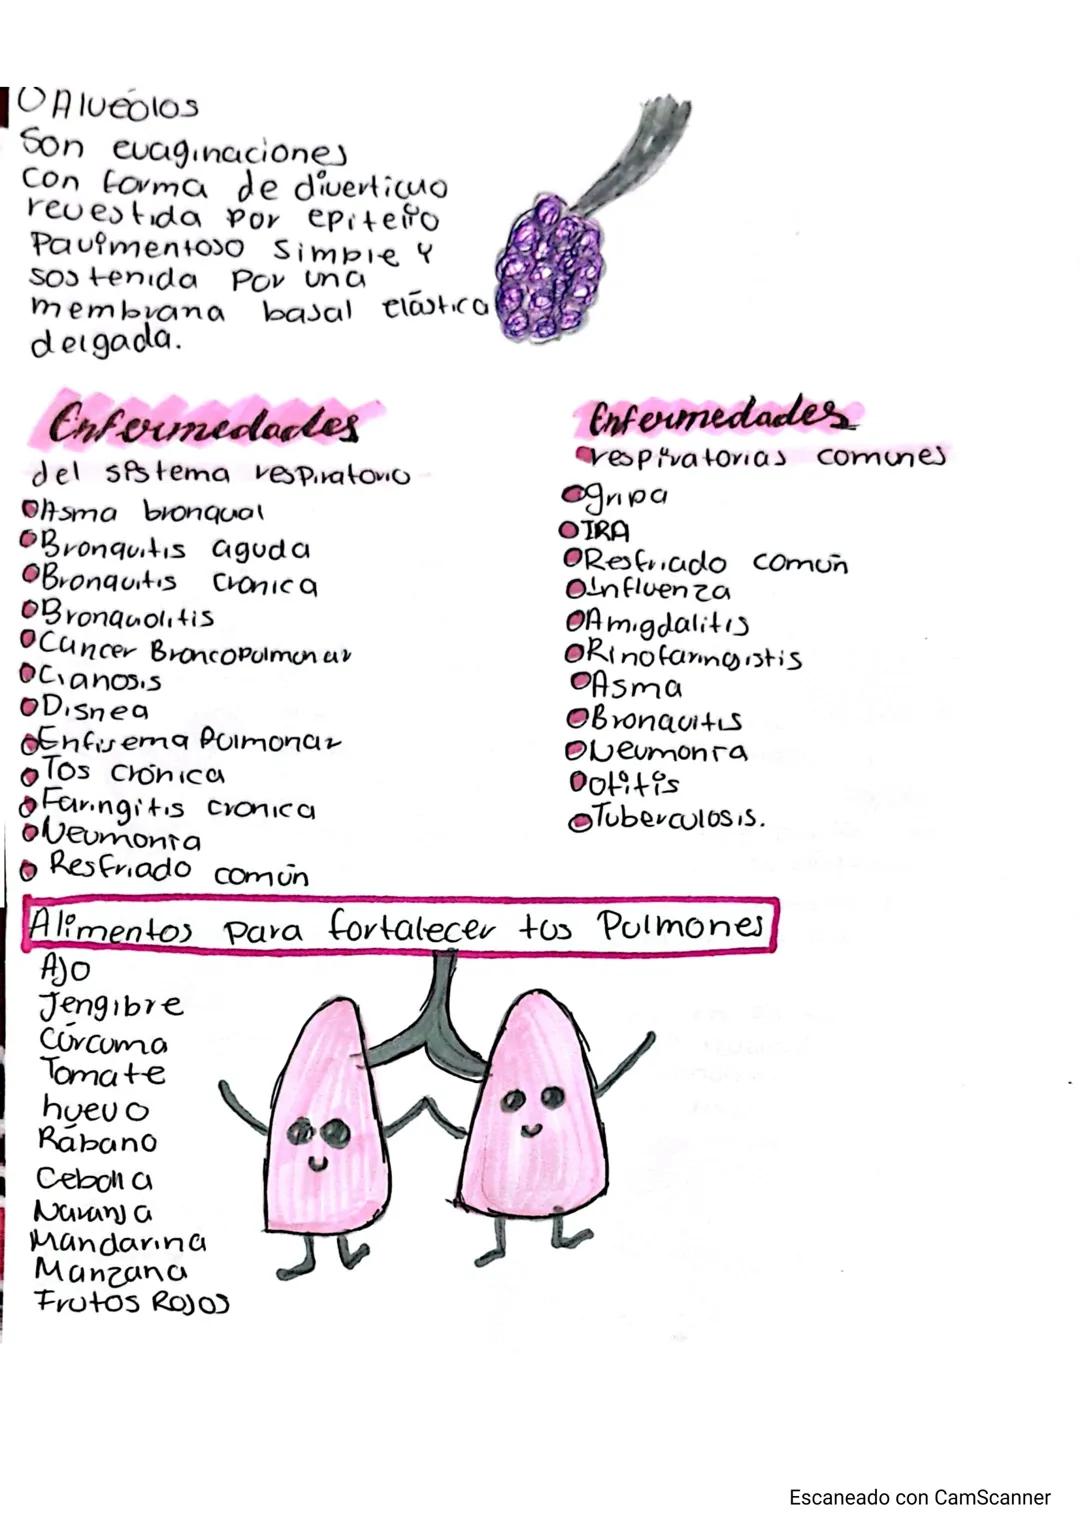 Alvéolos
Son evaginaciones
con forma de diverticuo
revestida por epitelio
Pavimentoso simple y
sostenida por una
membrana basal elástica
delgada.
Enfermedades
del sistema respiratorio
Asma bronquial
Bronquitis aguda
Bronquitis crónica
Bronquiolitis
Cancer Broncopulmonar
Cianosis
Disnea
Enfisema Pulmonar
Tos crónica
Faringitis cronica
Neumonía
Resfriado común
Enfermedades
respiratorias comunes
gripa
IRA
Resfriado común
Influenza
Amigdalitis
Rinofaringistis
Asma
Bronquitis
Neumonía
otitis
Tuberculosis.
Alimentos para fortalecer tus Pulmones
Ajo
Jengibre
Cúrcuma
Tomate
huevo
Rábano
Cebolla
Naranja
Mandarina
Manzana
Frutos Rojos
Escaneado con CamScanner